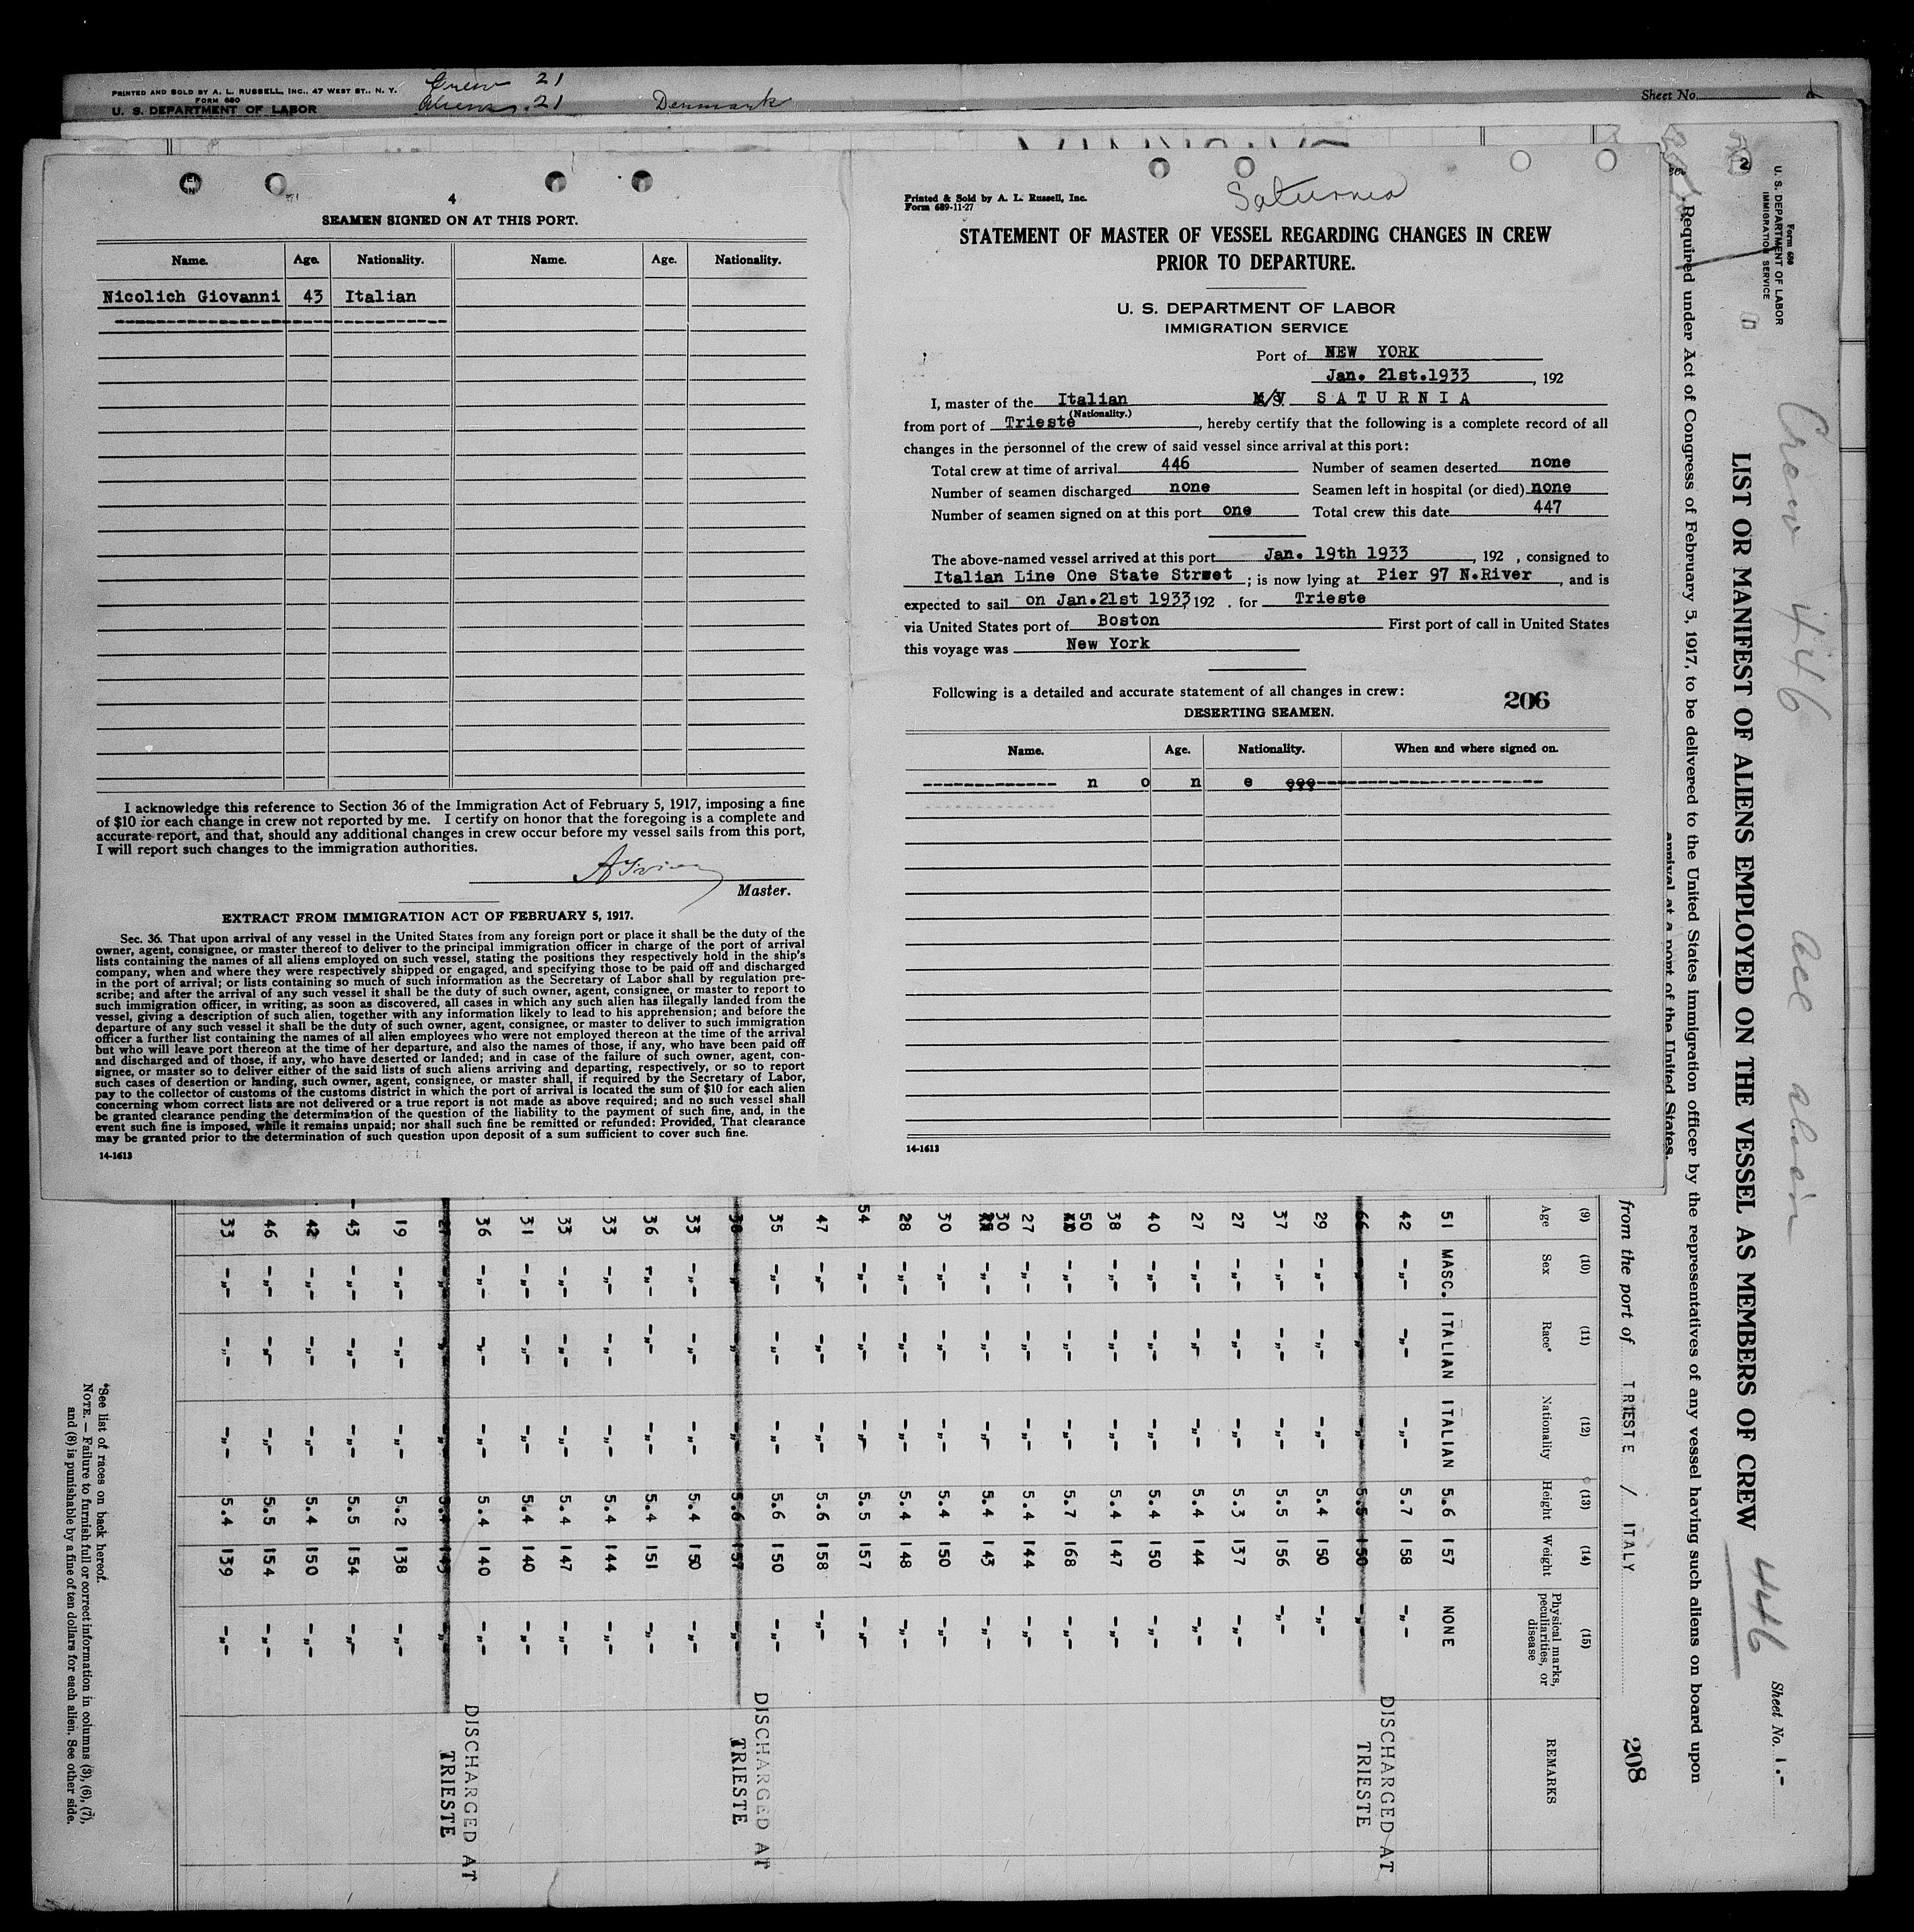 PRINTED AND SOLD BY A. L. RUSSELL, INC., 47 WEST ST., N. Y.
FORM 680
U. S. DEPARTMENT OF LABOR
Crew 21
Aliens 21
Denmark
Sheet No.
4
SEAMEN SIGNED ON AT THIS PORT.
Name. Age. Nationality. Name. Age. Nationality.
Nicolich Giovanni 43 Italian
I acknowledge this reference to Section 36 of the Immigration Act of February 5, 1917, imposing a fine
of $10 for each change in crew not reported by me. I certify on honor that the foregoing is a complete and
accurate report, and that, should any additional changes in crew occur before my vessel sails from this port,
I will report such changes to the immigration authorities.
Master.
EXTRACT FROM IMMIGRATION ACT OF FEBRUARY 5, 1917.
Sec. 36. That upon arrival of any vessel in the United States from any foreign port or place it shall be the duty of the
owner, agent, consignee, or master thereof to deliver to the principal immigration officer in charge of the port of arrival
lists containing the names of all aliens employed on such vessel, stating the positions they respectively hold in the ship's
company, when and where they were respectively shipped or engaged, and specifying those to be paid off and discharged
in the port of arrival; or lists containing so much of such information as the Secretary of Labor shall by regulation pre-
scribe; and after the arrival of any such vessel it shall be the duty of such owner, agent, consignee, or master to report to
such immigration officer, in writing, as soon as discovered, all cases in which any such alien has illegally landed from the
vessel, giving a description of such alien, together with any information likely to lead to his apprehension; and before the
departure of any such vessel it shall be the duty of such owner, agent, consignee, or master to deliver to such immigration
officer a further list containing the names of all alien employees who were not employed thereon at the time of the arrival
but who will leave port thereon at the time of her departure, and also the names of those, if any, who have been paid off
and discharged and of those, if any, who have deserted or landed; and in case of the failure of such owner, agent, con-
signee, or master so to deliver either of the said lists of such aliens arriving and departing, respectively, or so to report
such cases of desertion or landing, such owner, agent, consignee, or master shall, if required by the Secretary of Labor,
pay to the collector of customs of the customs district in which the port of arrival is located the sum of $10 for each alien
concerning whom correct lists are not delivered or a true report is not made as above required; and no such vessel shall
be granted clearance pending the determination of the question of the liability to the payment of such fine, and, in the
event such fine is imposed, while it remains unpaid; nor shall such fine be remitted or refunded: Provided, That clearance
may be granted prior to the determination of such question upon deposit of a sum sufficient to cover such fine.
14-1613
Saturnia
Printed & Sold by A. L. Russell, Inc.
Form 689-11-27
STATEMENT OF MASTER OF VESSEL REGARDING CHANGES IN CREW
PRIOR TO DEPARTURE.
U. S. DEPARTMENT OF LABOR
IMMIGRATION SERVICE
Port of NEW YORK
Jan. 21st.1933, 192
I, master of the Italian M/V SATURNIA
(Nationality.)
from port of Trieste, hereby certify that the following is a complete record of all
changes in the personnel of the crew of said vessel since arrival at this port:
Total crew at time of arrival 446 Number of seamen deserted none
Number of seamen discharged none Seamen left in hospital (or died) none
Number of seamen signed on at this port one Total crew this date 447
The above-named vessel arrived at this port Jan. 19th 1933, 192 , consigned to
Italian Line One State Street; is now lying at Pier 97 N.River, and is
expected to sail on Jan.21st 1933, 192 . for Trieste
via United States port of Boston First port of call in United States
this voyage was New York
Following is a detailed and accurate statement of all changes in crew:
206
DESERTING SEAMEN.
Name. Age. Nationality. When and where signed on.
n o n e
14-1613
Form 680
U. S. DEPARTMENT OF LABOR
IMMIGRATION SERVICE
Crew 446 all alien
LIST OR MANIFEST OF ALIENS EMPLOYED ON THE VESSEL AS MEMBERS OF CREW 446
Sheet No. 1.-
Required under Act of Congress of February 5, 1917, to be delivered to the United States immigration officer by the representatives of any vessel having such aliens on board upon
arrival at a port of the United States.
from the port of TRIESTE / ITALY
208
(9) (10) (11) (12) (13) (14) (15)
Age Sex Race* Nationality Height Weight Physical marks, peculiarities, or disease REMARKS
51 MASC. ITALIAN ITALIAN 5.6 157 NONE
42 -"- -"- -"- 5.7 158 -"-
66 -"- -"- -"- 5.5 150 -"- DISCHARGED AT TRIESTE
29 -"- -"- -"- 5.4 150 -"-
37 -"- -"- -"- 5.5 156 -"-
27 -"- -"- -"- 5.3 137 -"-
27 -"- -"- -"- 5.4 144 -"-
40 -"- -"- -"- 5.4 150 -"-
38 -"- -"- -"- 5.4 147 -"-
50 -"- -"- -"- 5.7 168 -"-
27 -"- -"- -"- 5.4 144 -"-
30 -"- -"- -"- 5.4 143 -"-
30 -"- -"- -"- 5.4 150 -"-
28 -"- -"- -"- 5.4 148 -"-
54 -"- -"- -"- 5.5 157 -"-
47 -"- -"- -"- 5.6 158 -"-
35 -"- -"- -"- 5.6 150 -"-
-"- -"- -"- 5.6 157 -"- DISCHARGED AT TRIESTE
33 -"- -"- -"- 5.4 150 -"-
36 -"- -"- -"- 5.4 151 -"-
33 -"- -"- -"- 5.4 144 -"-
33 -"- -"- -"- 5.4 147 -"-
31 -"- -"- -"- 5.4 140 -"-
36 -"- -"- -"- 5.4 140 -"-
-"- -"- -"- -"- DISCHARGED AT TRIESTE
19 -"- -"- -"- 5.2 138 -"-
43 -"- -"- -"- 5.5 154 -"-
42 -"- -"- -"- 5.4 150 -"-
46 -"- -"- -"- 5.5 154 -"-
33 -"- -"- -"- 5.4 139 -"-
*See list of races on back hereof.
NOTE.—Failure to furnish full or correct information in columns (3), (6), (7),
and (8) is punishable by a fine of ten dollars for each alien. See other side.